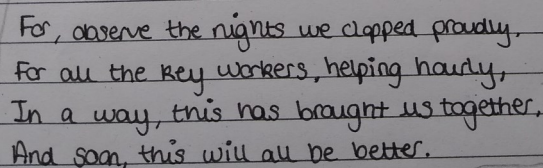 For, observe the nights we clapped proudly.
For all the key workers, helping hourly,
In a way, this has brought us together,
And soon, this will all be better.